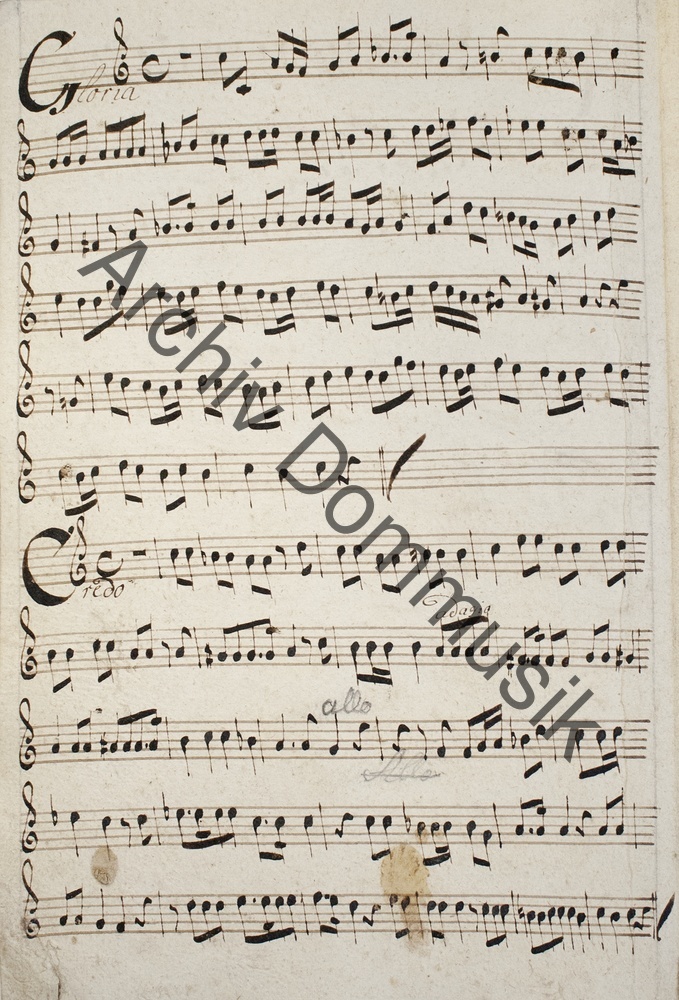 Gloria
Credo
Adagio
allo
Allo
Archiv Dommusik